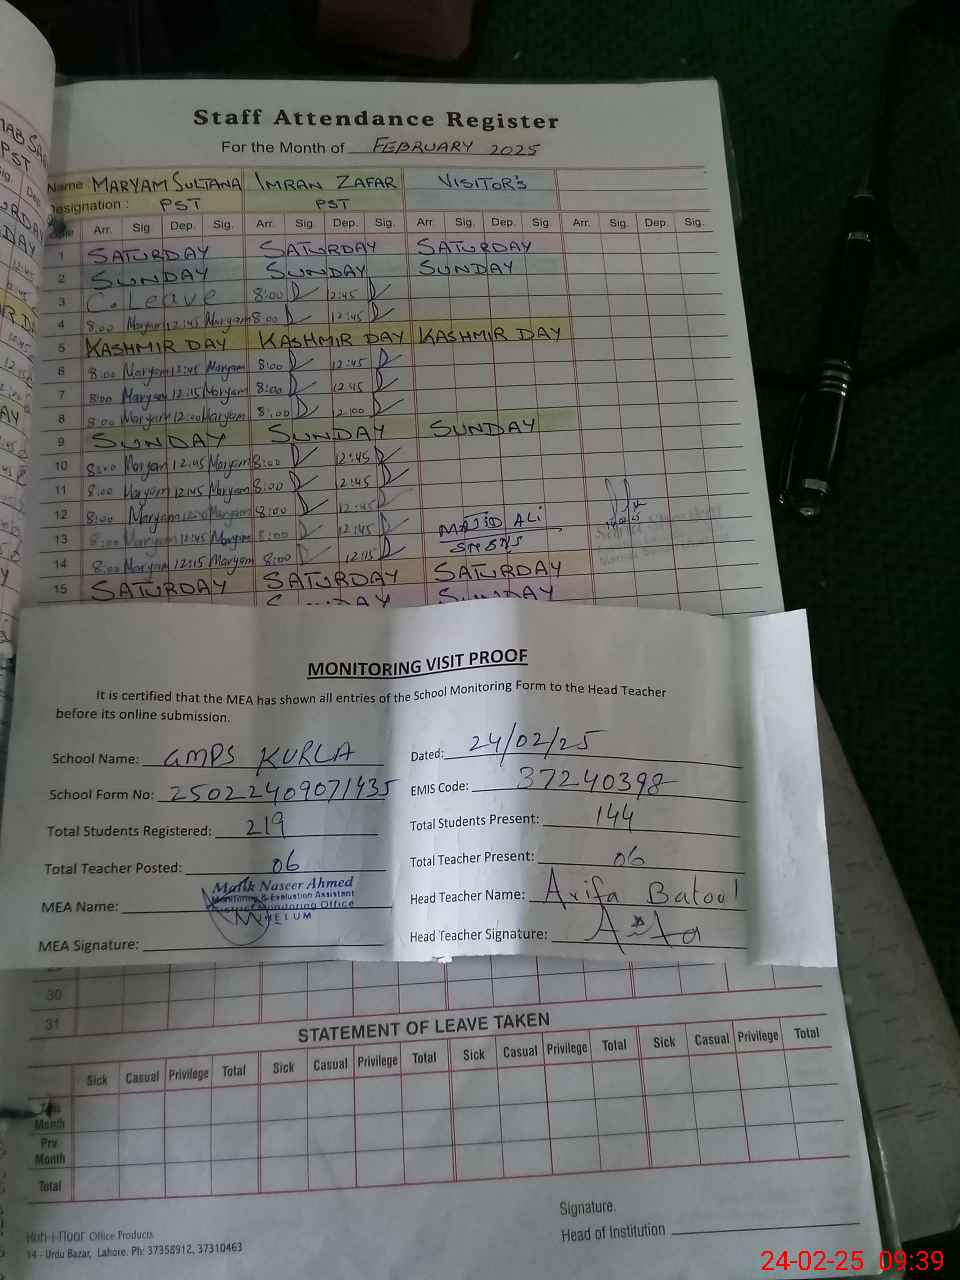 Staff Attendance Register
For the Month of FEBRUARY 2025
Name MARYAM SULTANA IMRAN ZAFAR VISITOR'S
Designation : PST PST
Arr. Sig Dep. Sig. Arr. Sig. Dep. Sig. Arr. Sig. Dep. Sig. Arr. Sig. Dep. Sig.
1 SATURDAY SATURDAY SATURDAY
2 SUNDAY SUNDAY SUNDAY
3 C. Leave 8:00 12:45
4 8:00 Maryam 12:45 Maryam 8:00 12:45
5 KASHMIR DAY KASHMIR DAY KASHMIR DAY
6 8:00 Maryam 12:45 Maryam 8:00 12:45
7 8:00 Maryam 12:15 Maryam 8:00 12:15
8 8:00 Maryam 12:00 Maryam 8:00 2:00
9 SUNDAY SUNDAY SUNDAY
10 8:00 Maryam 12:45 Maryam 8:00 12:45
11 8:00 Maryam 12:45 Maryam 8:00 12:45
12 8:00 Maryam Maryam 8:00 12:45
13 8:00 Maryam 12:45 Maryam 8:00 12:45 MAJID ALi
14 8:00 Maryam 12:15 Maryam 8:00 12:15
15 SATURDAY SATURDAY SATURDAY
MONITORING VISIT PROOF
It is certified that the MEA has shown all entries of the School Monitoring Form to the Head Teacher
before its online submission.
School Name: GMPS KURLA Dated: 24/02/25
School Form No: 25022409071435 EMIS Code: 37240398
Total Students Registered: 219 Total Students Present: 144
Total Teacher Posted: 06 Total Teacher Present: 06
MEA Name: Malik Naseer Ahmed Head Teacher Name: Arifa Batool
Monitoring & Evaluation Assistant
District Monitoring Office
JHELUM
MEA Signature: Head Teacher Signature:
30
31
STATEMENT OF LEAVE TAKEN
Sick Casual Privilege Total Sick Casual Privilege Total Sick Casual Privilege Total Sick Casual Privilege Total
This Month
Prv. Month
Total
Signature.
Head of Institution
Koh-i-Noor Office Products
14 - Urdu Bazar, Lahore. Ph: 37358912, 37310463
24-02-25 09:39